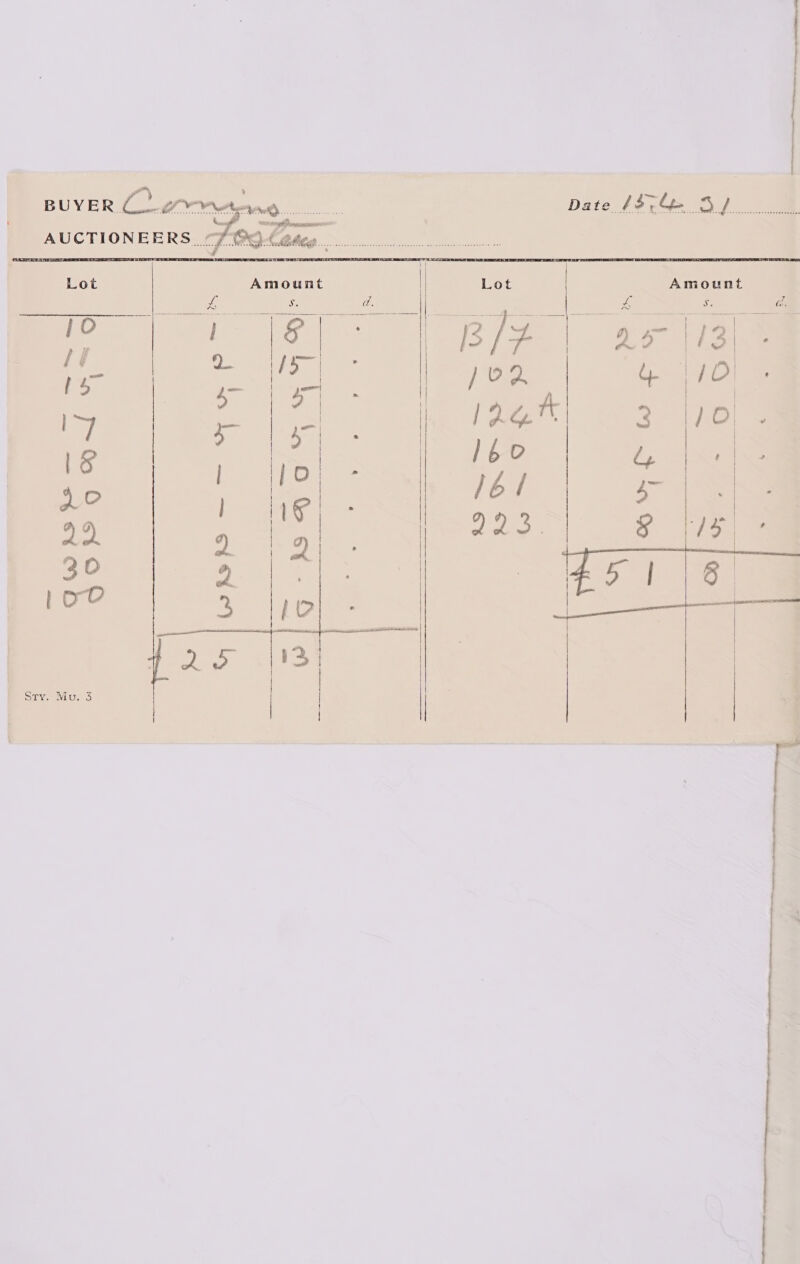 BUYER Date 15.4.31
AUCTIONEERS
Lot Amount Lot Amount
£ s. d. £ s. d.
10 1 8 - B/F 25 13 -
11 2 15 - 102 4 10 -
15 5 5 - 124A 3 10 -
17 5 5 - 160 4 - -
18 1 10 - 161 5 - -
20 1 18 - 223. 8 15 -
22 2 2 -
30 2 - - £51 8
100 3 10 -
£25 13
Sty. Mu. 3